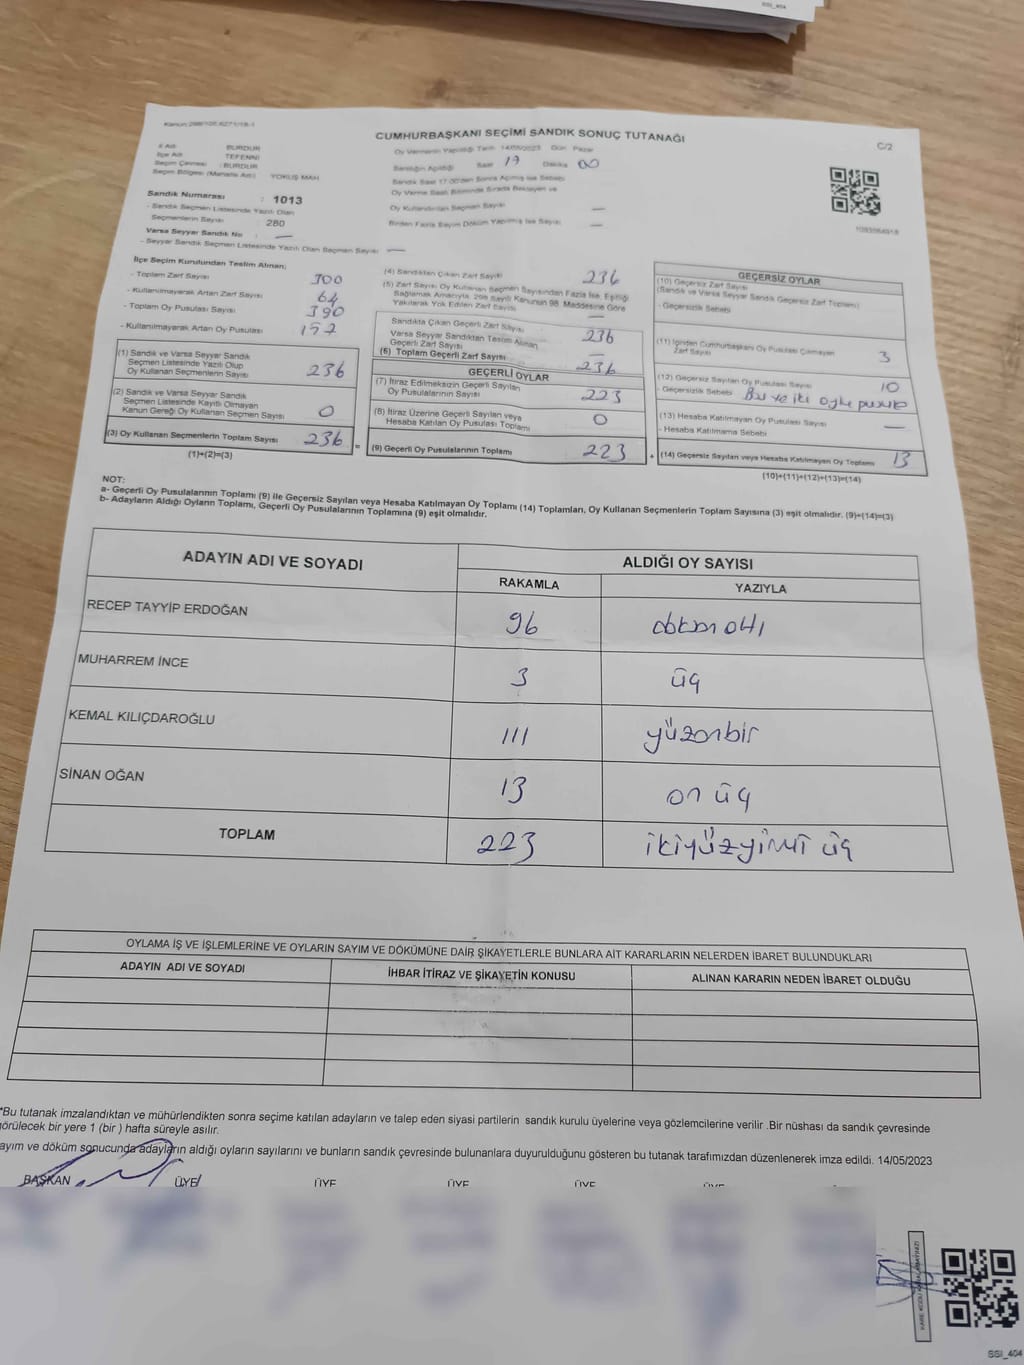 SSI_404
Kanun:298/105,6271/18-1
CUMHURBAŞKANI SEÇİMİ SANDIK SONUÇ TUTANAĞI
C/2
İl Adı : BURDUR
İlçe Adı : TEFENNİ
Seçim Çevresi : BURDUR
Seçim Bölgesi (Mahalle Adı) : YOKUŞ MAH
Oy Vermenin Yapıldığı Tarih 14/05/2023 Gün Pazar
Sandığın Açıldığı Saat 19 Dakika 00
Sandık Saat 17:00'den Sonra Açılmış İse Sebebi
Oy Verme Saati Bitiminde Sırada Bekleyen ve
Oy Kullandırılan Seçmen Sayısı —
Birden Fazla Sayım Döküm Yapılmış İse Sayısı —
Sandık Numarası : 1013
- Sandık Seçmen Listesinde Yazılı Olan
Seçmenlerin Sayısı : 280
Varsa Seyyar Sandık No : —
- Seyyar Sandık Seçmen Listesinde Yazılı Olan Seçmen Sayısı : —
İlçe Seçim Kurulundan Teslim Alınan;
- Toplam Zarf Sayısı 300
- Kullanılmayarak Artan Zarf Sayısı 64
- Toplam Oy Pusulası Sayısı 390
- Kullanılmayarak Artan Oy Pusulası 157
(1) Sandık ve Varsa Seyyar Sandık
Seçmen Listesinde Yazılı Olup
Oy Kullanan Seçmenlerin Sayısı 236
(2) Sandık ve Varsa Seyyar Sandık
Seçmen Listesinde Kayıtlı Olmayan
Kanun Gereği Oy Kullanan Seçmen Sayısı 0
(3) Oy Kullanan Seçmenlerin Toplam Sayısı 236
(1)+(2)=(3)
=
(4) Sandıktan Çıkan Zarf Sayısı 236
(5) Zarf Sayısı Oy Kullanan Seçmen Sayısından Fazla İse, Eşitliği
Sağlamak Amacıyla, 298 Sayılı Kanunun 98. Maddesine Göre
Yakılarak Yok Edilen Zarf Sayısı —
Sandıkta Çıkan Geçerli Zarf Sayısı 236
Varsa Seyyar Sandıktan Teslim Alınan
Geçerli Zarf Sayısı —
(6) Toplam Geçerli Zarf Sayısı 236
GEÇERLİ OYLAR
(7) İtiraz Edilmeksizin Geçerli Sayılan
Oy Pusulalarının Sayısı 223
(8) İtiraz Üzerine Geçerli Sayılan veya
Hesaba Katılan Oy Pusulası Toplamı 0
(9) Geçerli Oy Pusulalarının Toplamı 223
+
GEÇERSİZ OYLAR
(10) Geçersiz Zarf Sayısı
(Sandık ve Varsa Seyyar Sandık Geçersiz Zarf Toplamı)
- Geçersizlik Sebebi
(11) İçinden Cumhurbaşkanı Oy Pusulası Çıkmayan
Zarf Sayısı 3
(12) Geçersiz Sayılan Oy Pusulası Sayısı 10
- Geçersizlik Sebebi
(13) Hesaba Katılmayan Oy Pusulası Sayısı —
- Hesaba Katılmama Sebebi
(14) Geçersiz Sayılan veya Hesaba Katılmayan Oy Toplamı 13
(10)+(11)+(12)+(13)=(14)
NOT:
a- Geçerli Oy Pusulalarının Toplamı (9) ile Geçersiz Sayılan veya Hesaba Katılmayan Oy Toplamı (14) Toplamları, Oy Kullanan Seçmenlerin Toplam Sayısına (3) eşit olmalıdır. (9)+(14)=(3)
b- Adayların Aldığı Oyların Toplamı, Geçerli Oy Pusulalarının Toplamına (9) eşit olmalıdır.
ADAYIN ADI VE SOYADI
ALDIĞI OY SAYISI
RAKAMLA YAZIYLA
RECEP TAYYİP ERDOĞAN 96 doksan altı
MUHARREM İNCE 3 üç
KEMAL KILIÇDAROĞLU 111 yüzonbir
SİNAN OĞAN 13 on üç
TOPLAM 223 ikiyüzyirmi üç
OYLAMA İŞ VE İŞLEMLERİNE VE OYLARIN SAYIM VE DÖKÜMÜNE DAİR ŞİKAYETLERLE BUNLARA AİT KARARLARIN NELERDEN İBARET BULUNDUKLARI
ADAYIN ADI VE SOYADI İHBAR İTİRAZ VE ŞİKAYETİN KONUSU ALINAN KARARIN NEDEN İBARET OLDUĞU
*Bu tutanak imzalandıktan ve mühürlendikten sonra seçime katılan adayların ve talep eden siyasi partilerin sandık kurulu üyelerine veya gözlemcilerine verilir .Bir nüshası da sandık çevresinde
görülecek bir yere 1 (bir ) hafta süreyle asılır.
ayım ve döküm sonucunda adayların aldığı oyların sayılarını ve bunların sandık çevresinde bulunanlara duyurulduğunu gösteren bu tutanak tarafımızdan düzenlenerek imza edildi. 14/05/2023
BAŞKAN ÜYE ÜYE ÜYE ÜYE ÜYE
SSI_404